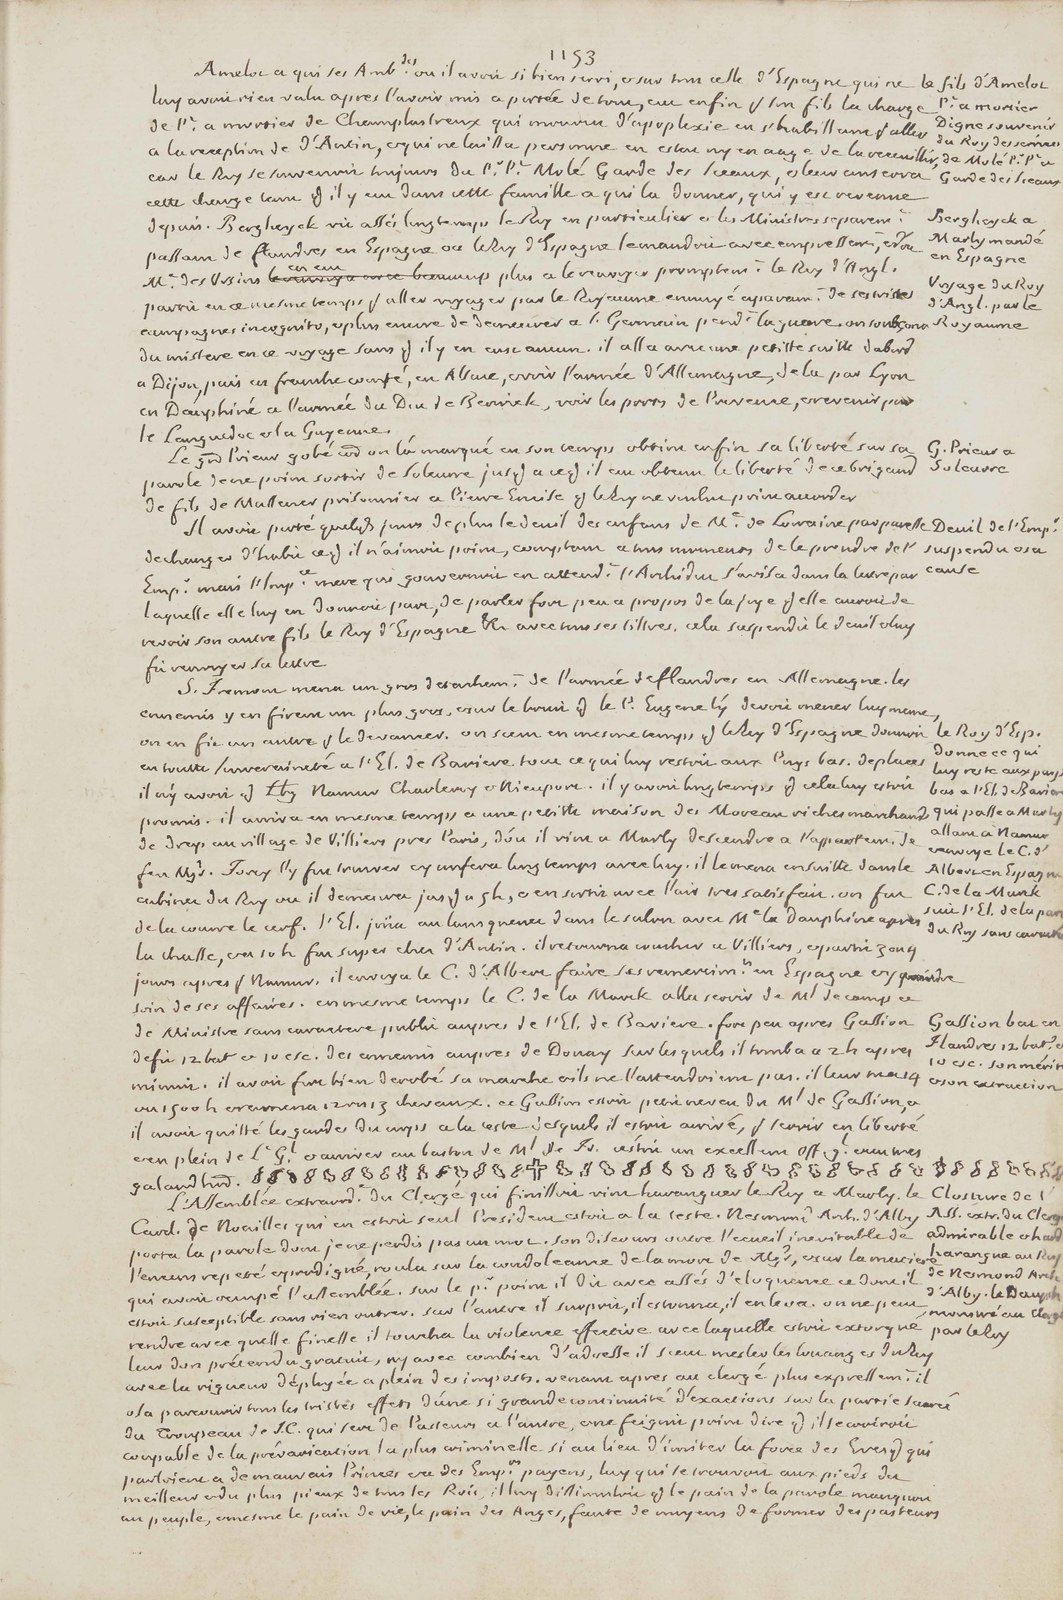 1153
Amelot a qui ses Amb.des ou il avoit si bien servi, et sur tout celle d'Espagne qui ne
luy avoit rien valu apres l'avoir mis a portée de tout, eut enfin p.r son fils la charge
de P.t a mortier de Champlastreux qui mourut d'apoplexie en s'habillant p.r aller
a la reception de d'Antin, et qui ne laissa personne en estat ny en aage de la recueillir,
car le Roy se souvenoit toujours du P.r P.t Molé Garde des Sceaux, et leur conserva
cette charge tant q. il y eut dans cette famille a qui la donner, qui y est revenue
depuis. Bergheyck vit assés longtemps le Roy en particulier et les Ministres separem.t
passant de flandres en Espagne ou le Roy d'Espagne le mandoit avec empressem.t, et ou
M.e des Ursins en eut beaucoup plus a le renvoyer promptem.t le Roy d'Angl.
partit en ce mesme temps p.r aller voyager par le Royaume ennuyé aparam.t de ses tristes
campagnes incognito, et plus encore de demeurer a S. Germain pend.t la guerre. on soubçona
du mistere en ce voyage sans q. il y en eust aucun. il alla avec une petitte suitte d'abord
a Dijon, puis en franche comté, en Alsace, et voir l'armée d'Allemagne, de la par Lyon
en Dauphiné a l'armée du Duc de Berwick, voir les ports de Provence, et revenir par
le Languedoc et la Guyenne.
Le g.nd Prieur gobé co.e on l'a marqué en son temps obtint enfin sa liberté sur sa
parole de ne point sortir de Soleurre jusq. a ce q. il eut obtenu la liberté de ce brigand
de fils de Massener prisonnier a Pierre Encise q. le Roy ne voulut point accorder
Il avoit porté quelq.s jours de plus le deuil des enfans de M.e de Lorraine par paresse
de changer d'habit ce q. il n'aimoit point, comptant a tous momens de le prendre de l'
Emp.r mais l'Imp.ce mere qui gouvernoit en attend.t l'Archiduc s'avisa dans la lettre par
laquelle elle luy en donnoit part, de parler fort peu a propos de la joye q. elle auroit de
revoir son autre fils le Roy d'Espagne &c avec tous ses tiltres. cela suspendit le deuil et luy
fit renvoyer sa lettre
S. Fremont mena un gros detachem.t de l'armée de flandres en Allemagne. les
ennemis y en firent un plus gros, et sur le bruit q. le P. Eugene l'y devoit mener luy mesme,
on en fit un autre p.r le devancer. on sceut en mesme temps q. le Roy d'Espagne donnoit
en toutte souveraineté a l'El. de Baviere tout ce qui luy restoit aux Pays bas. de places
il n'y avoit q. Lbg Namur Charleroy et Nieuport. il y avoit longtemps q. cela luy estoit
promis. il arriva en mesme temps a une petitte maison des Moreau riches marchands
de drap au village de Villiers pres Paris, d'où il vint a Marly descendre a l'appartem.t de
feu Mg.r. Torcy l'y fut trouver et y confera longtemps avec luy. il le mena ensuitte dans le
cabinet du Roy ou il demeura jusq. a 5 h, et en sortit avec l'air tres satisfait. on fut
de la courre le cerf. l'El. joüa au lansquenet dans le salon avec M.e la Dauphine apres
la chasse, et a 10 h fut souper chez d'Antin. il retourna coucher a Villiers, et partit 3 ou 4
jours apres p.r Namur. il envoya le C. d'Albert faire ses remerciem.ts en Espagne et y prendre
soin de ses affaires. en mesme temps le C. de la Marck alla servir de M.l de camp et
de Ministre sans caractere public aupres de l'El. de Baviere. fort peu apres Gassion
defit 12 bat. et 10 esc. des ennemis aupres de Douay sur lesquels il tomba a 2 h apres
minuit. il avoit fort bien derobé sa marche et ils ne l'attendoient pas. il leur tua 14
ou 1500 h et ramena 12 ou 13 chevaux. ce Gassion estoit petit neveu du M.l de Gassion, et
il avoit quitté les gardes du corps a la teste desquels il estoit arrivé, p.r servir en liberté
et en plein de L.t G.l et arriver au baston de M.l de Fr. c'estoit un excellent Off. g.l et un tres
galand ho.e.
L'Assemblée extraord.re du Clergé qui finissoit vint haranguer le Roy a Marly. le
Card. de Noailles qui en estoit seul President estoit a la teste. Nesmond Arch. d'Alby
porta la parole dont je ne perdis pas un mot. son discours outre l'ecueil inevitable de
l'encens repeté et prodigué, roula sur la condoleance de la mort de Mg.r, et sur la matiere
qui avoit occupé l'assemblée. sur le p.r point il dit avec assés d'eloquence ce dont il
estoit susceptible sans rien outrer. sur l'autre il surprit, il estonna, il enleva. on ne peut
rendre avec quelle finesse il toucha la violence effective avec laquelle estoit extorqué
leur don prétendu gratuit, ny avec combien d'adresse il sceut mesler les louanges du Roy
avec la rigueur déployée a plein des imposts. venant apres au clergé plus expressem.t il
osa parcourir tous les tristes effets d'une si grande continuité d'exactions sur la partie sacrée
du Trouppeau de J.C. qui sert de Pasteurs a l'autre, et ne feignit point dire q. il se croiroit
coupable de la prévarication la plus criminelle si au lieu d'imiter la force des Evesq. qui
parloient a de mauvais Princes et a des Emp.rs payens, luy qui se trouvoit aux pieds du
meilleur et du plus pieux de tous les Rois, il luy dissimuloit q. le pain de la parole manquoit
au peuple, et mesme le pain de vie, le pain des Anges, faute de moyens de former des pasteurs
le fils d'Amelot
P.t a mortier
Digne souvenir
du Roy des services
de Molé P.r P.t et
Garde des Sceaux
Bergheyck a
Marly mandé
en Espagne
Voyage du Roy
d'Angl. par le
Royaume
G. Prieur a
Soleurre
Deuil de l'Emp.r
suspendu et sa
cause
le Roy d'Esp.
donne ce qui
luy reste aux pays
bas a l'El. de Baviere
qui passe a Marly
allant a Namur
et envoye le C. d'
Albert en Espagne
C. de la Marck
suit l'El. de la part
du Roy sans caractere
Gassion bat en
Flandres 12 bat. et
10 esc. son mérite
et son extraction
Closture de l'
Ass. extr. du Clergé
admirable et hardie
harangue au Roy
de Nesmond Arch.
d'Alby. le Dauph.
monstré au clergé
par le Roy